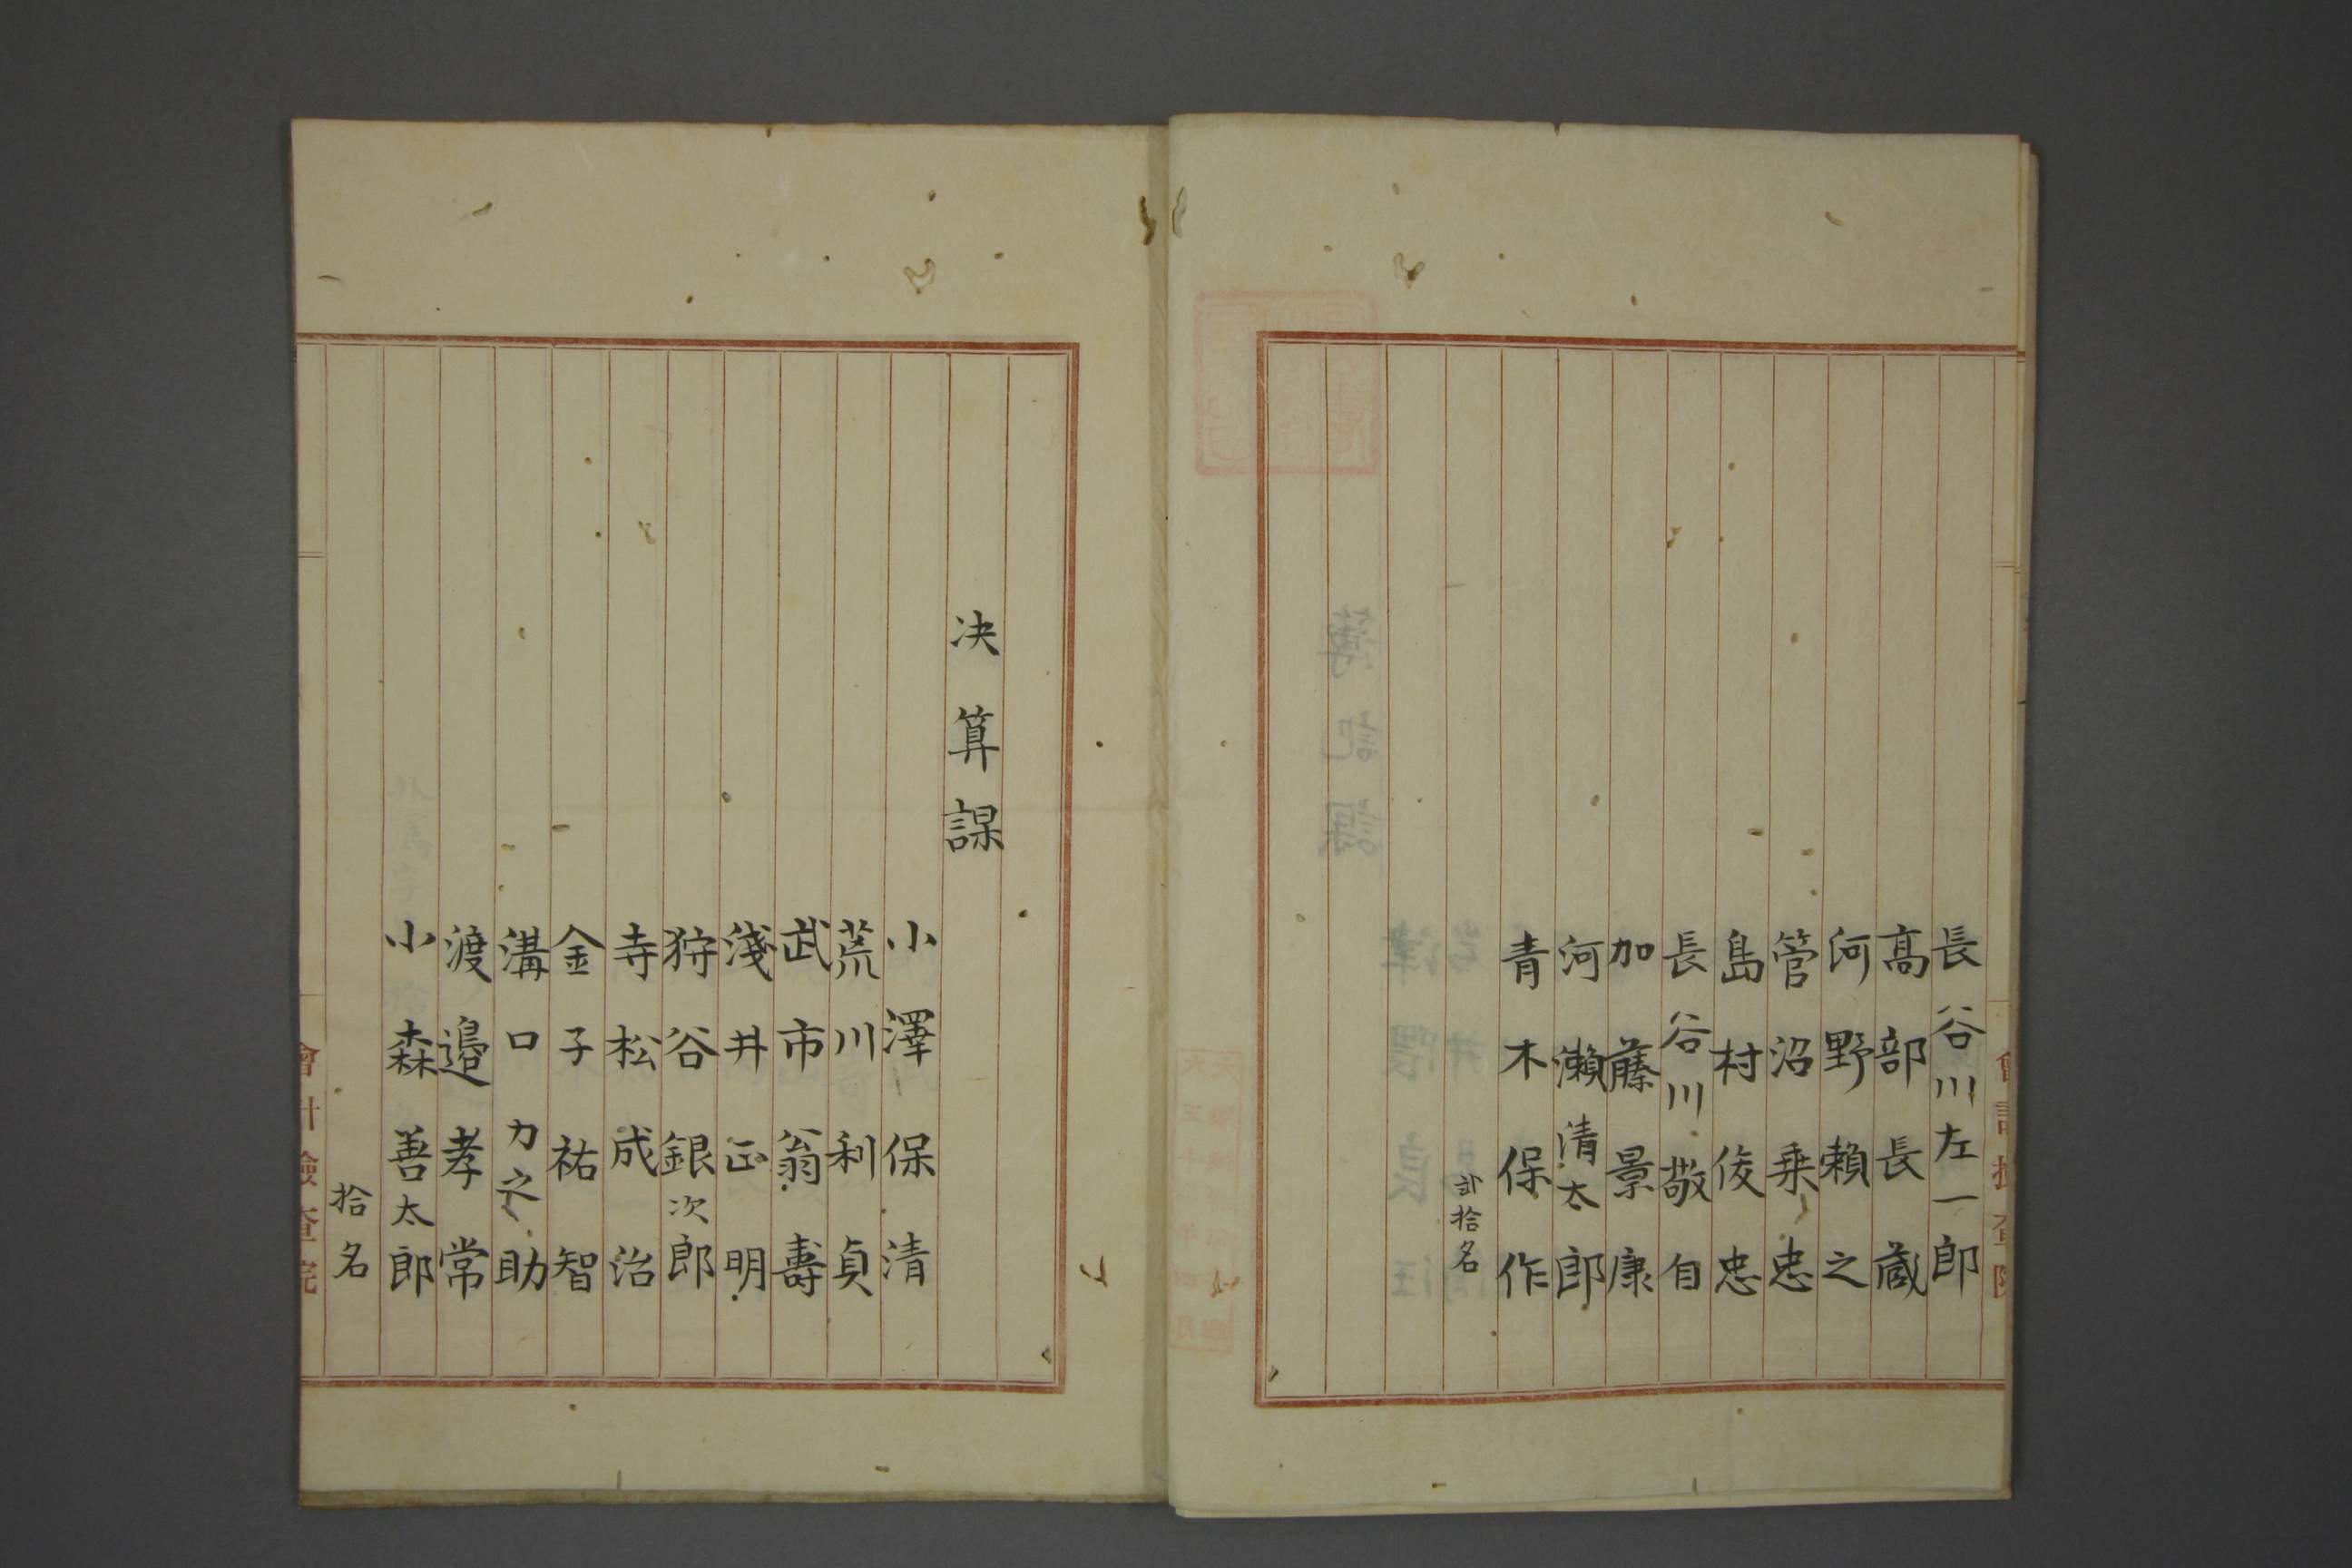 長谷川左一郎
髙部長蔵
河野賴之
管沼乗忠
島村俊忠
長谷川敬自
加藤景康
河瀬清太郎
青木保作
弐拾名
决算課
小澤保清
荒川利貞
武市翁壽
淺井正明
狩谷銀次郎
寺松成治
金子祐智
溝口力之助
渡邉孝常
小森善太郎
拾名
會計檢査院